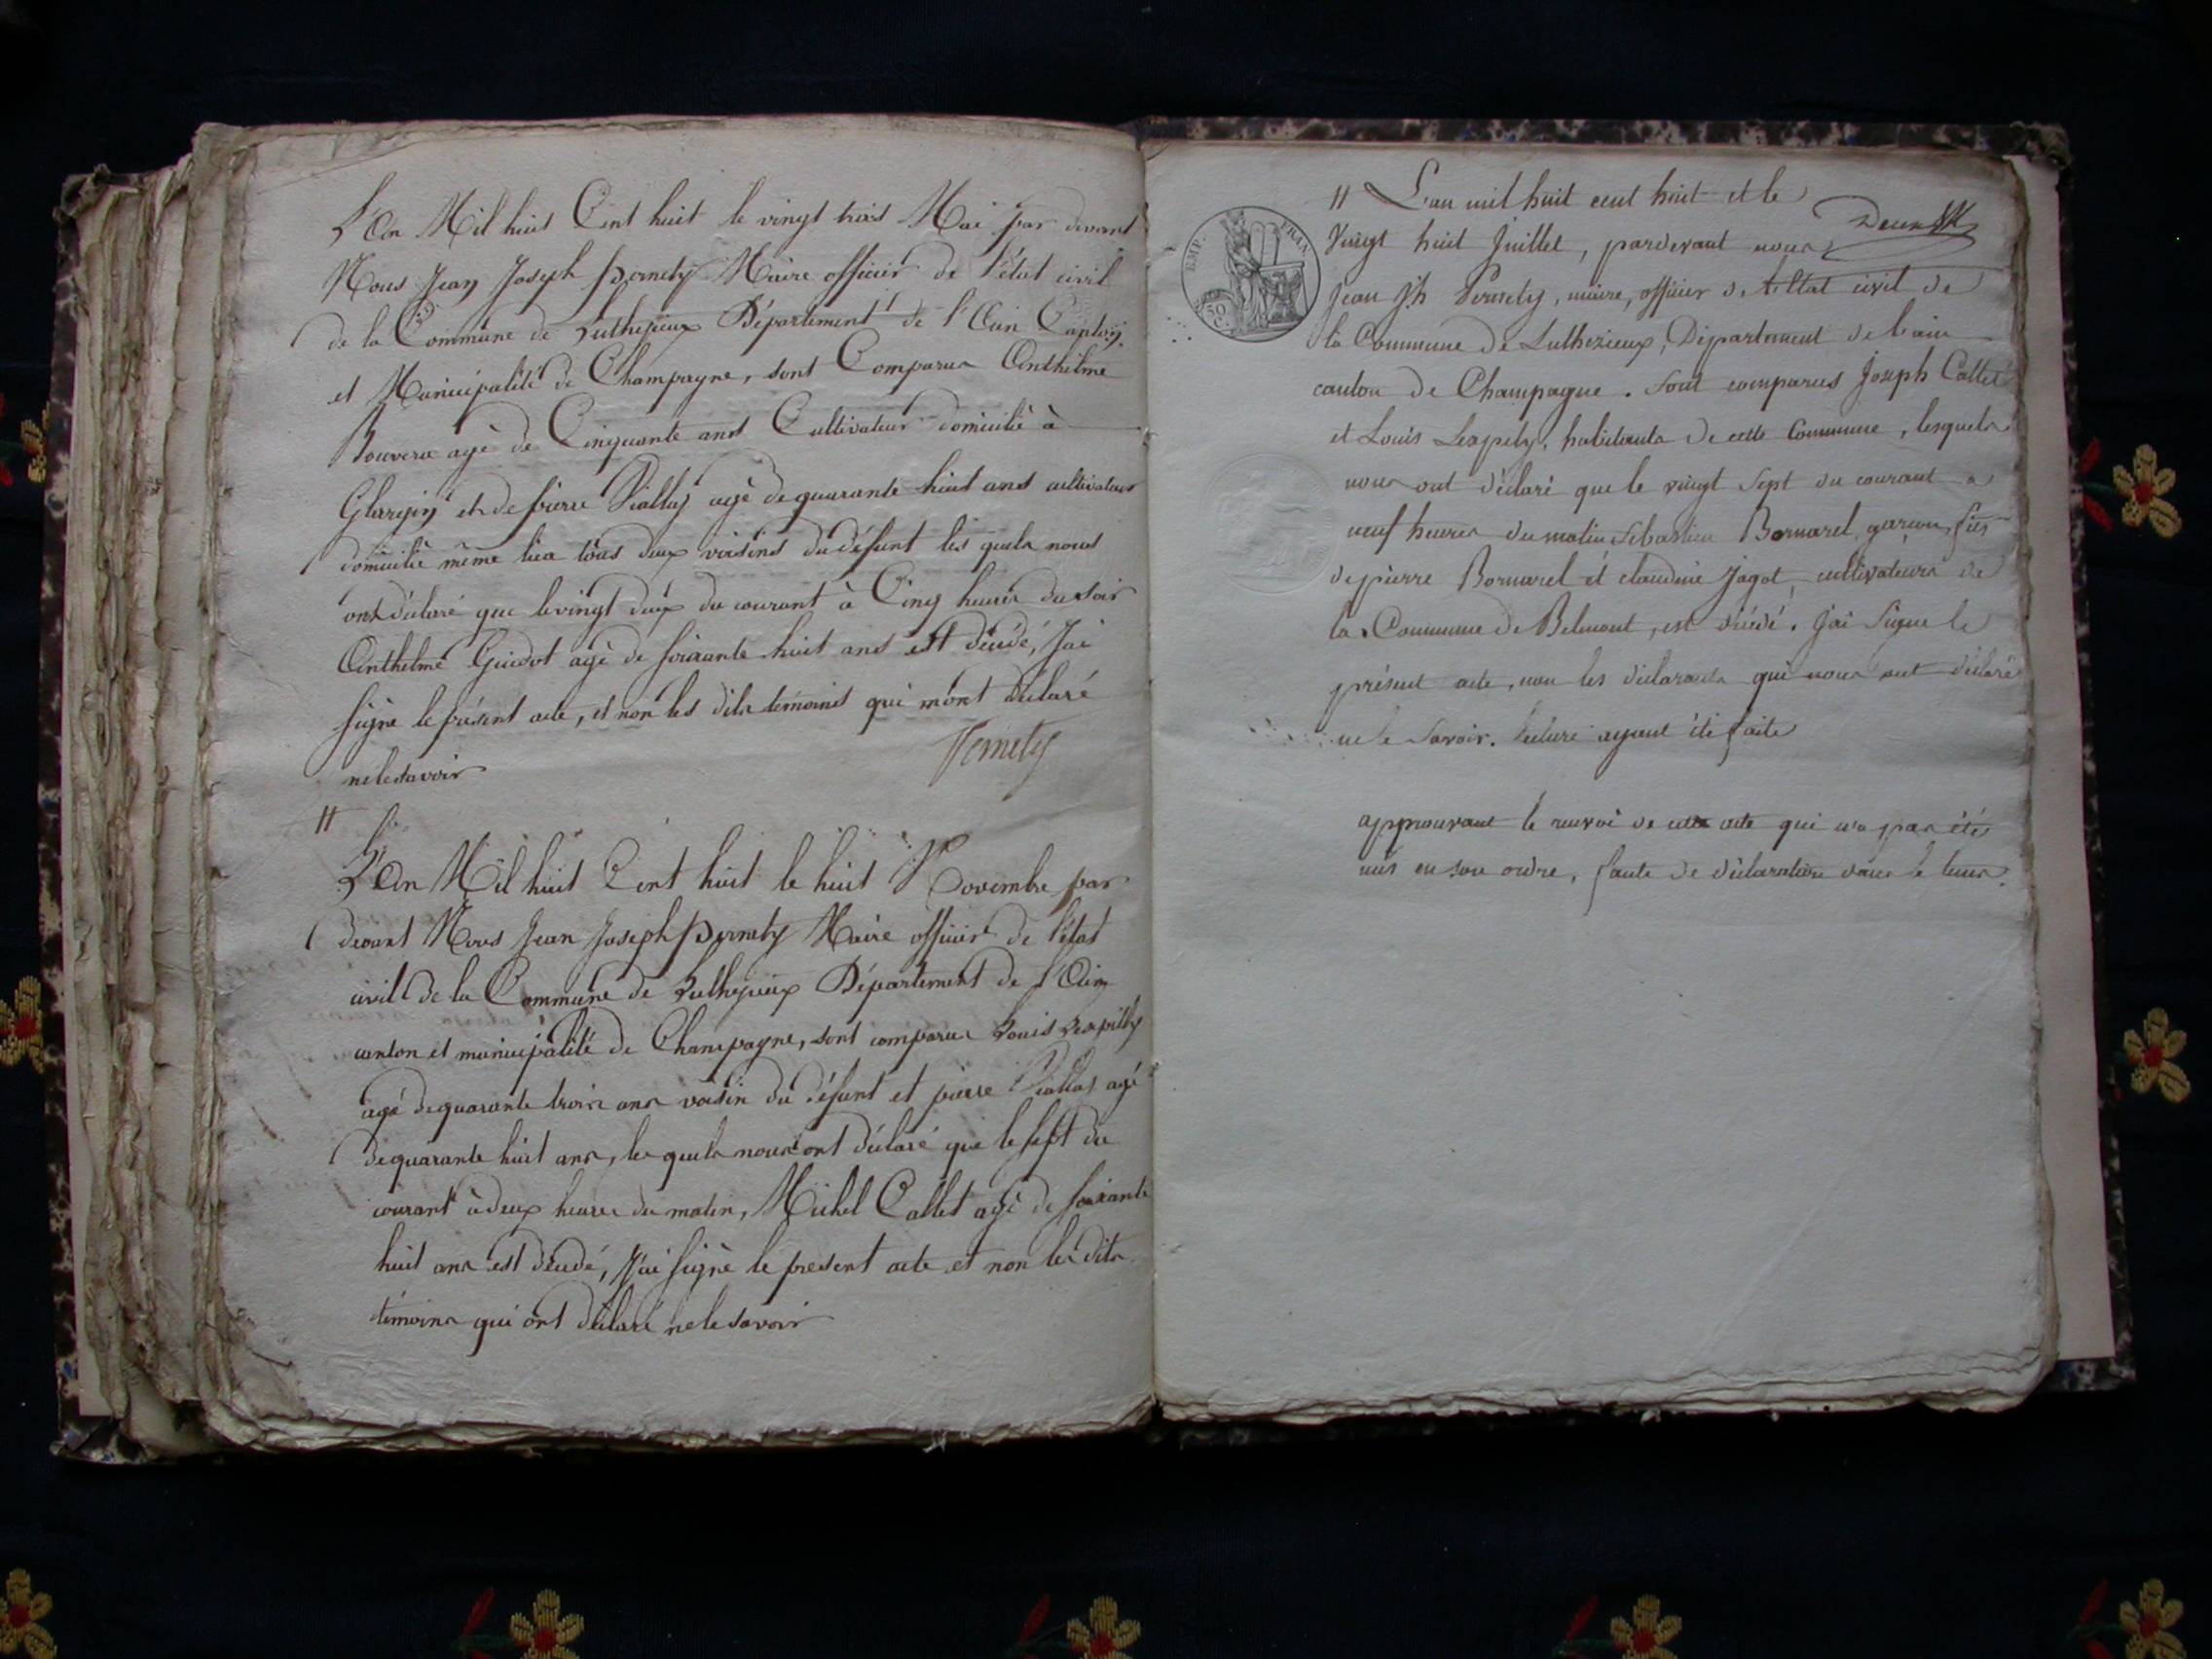 L'an Mil huit Cent huit le vingt trois Mai par devant
Nous Jean Joseph Pernety Maire officier de l'état civil
de la Commune de Luthezieux Département de l'Ain Canton
et Municipalité de Champagne, sont Comparus Anthelme
Bouvera agé de Cinquante ans Cultivateur domicilié à
et de pierre agé de quarante huit ans cultivateur
domicilié même lieu tous deux voisins du défunt les quels nous
ont déclaré que le vingt deux du courant à Cinq heures du soir
Anthelme Guidot agé de soixante huit ans est décédé, J'ai
signé le présent acte, et non les dits témoins qui m'ont déclaré
ne le savoir
Pernety
L'an Mil huit Cent huit le huit Novembre par
devant Nous Jean Joseph Pernety Maire officier de l'état
civil de la Commune de Luthezieux Département de l'Ain
canton et municipalité de Champagne, sont comparus Louis Lespilly
agé de quarante trois ans voisin du défunt et pierre agé
de quarante huit ans, les quels nous ont déclaré que le sept du
courant à deux heures du matin, Michel Callet agé de soixante
huit ans est décédé, J'ai signé le present acte et non les dits
témoins qui ont déclaré ne le savoir
EMP. FRAN
50
C.
L'an mil huit cent huit et le
vingt huit Juillet, pardevant nous
Jean Jh Pernety, maire, officier de l'Etat civil de
la Commune de Luthezieux, Département de l'ain
canton de Champagne. Sont comparus Joseph Callet
et Louis Lespely, habitants de cette Commune, lesquels
nous ont déclaré que le vingt sept du courant a
neuf heures du matin Sebastien Bornarel, garçon, fils
de pierre Bornarel et claudine Jagot, cultivateurs de
la Commune de Belmont, est décédé. J'ai signé le
présent acte, non les déclarants qui nous ont déclaré
ne le savoir. Lecture ayant été faite
approuvant le renvoi de cette acte qui n'a pas été
mis en son ordre, faute de déclaration dans le tems.